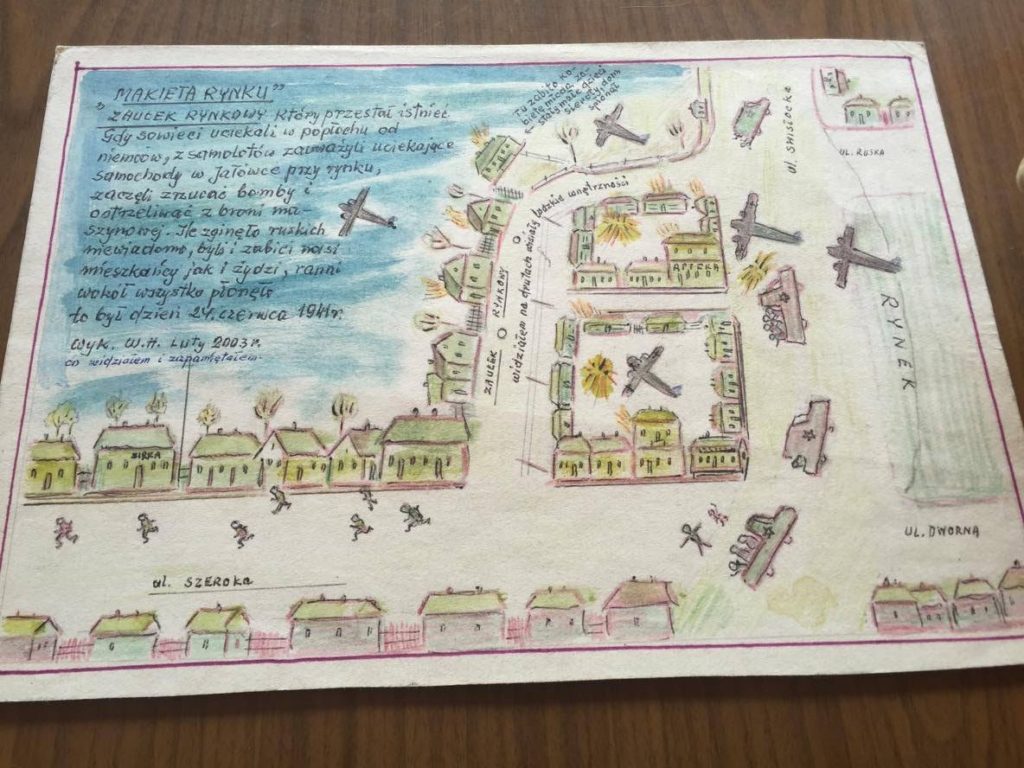 "MAKIETA RYNKU"
ZAUŁEK RYNKOWY Który przestał istnieć
Gdy sowieci uciekali w popłochu od
niemców, z samolotów zauważyli uciekające
samochody w Jałówce przy rynku,
zaczęli zrzucać bomby i
ostrzeliwać z broni ma-
szynowej. Ile zginęło ruskich
niewiadomo, byli i zabici nasi
mieszkańcy jak i żydzi, ranni
wokół wszystko płonęło
to był dzień 24, czerwca 1941r.
Wyk. W.H. Luty 2003 r.
co widziałem i zapamiętałem.
Tu zabito ko-
bietę, za-
stały małe dzieci
sieroty, dom
spłonął
ul. SWISŁOCKA
UL. RUSKA
widziałem na drutach wisiały ludzkie wnętrzności
ZAUŁEK RYNKOWY
APTEKA
RYNEK
ŻIRKA
UL. DWORNA
ul. SZEROKA